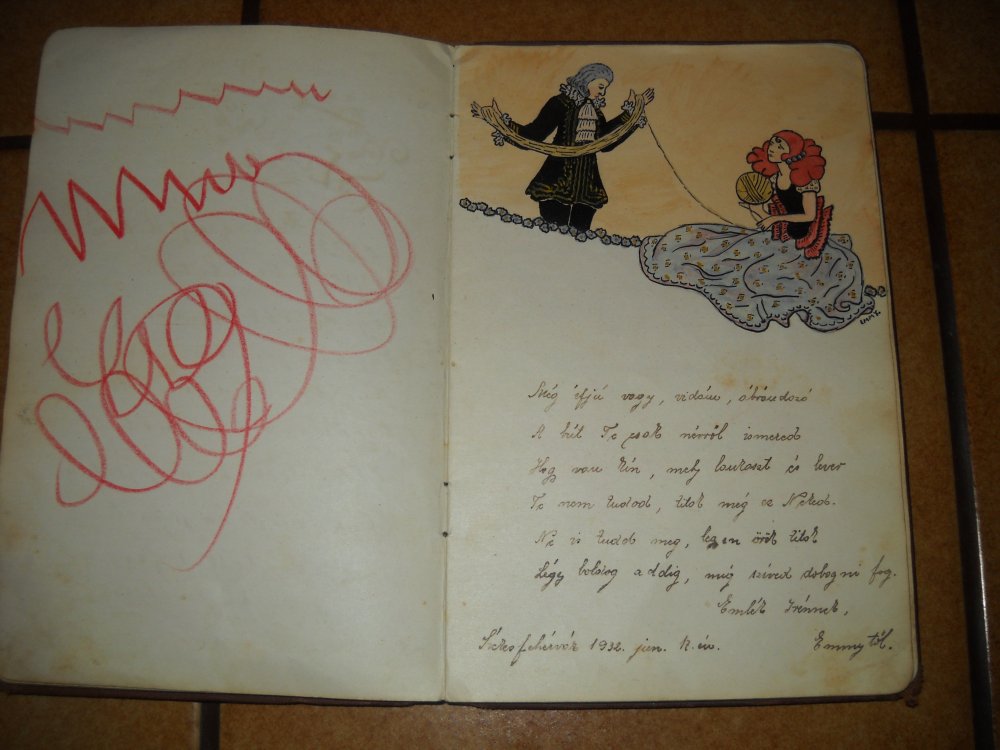 Még ifjú vagy, vidám, ábrándozó
A bút Te csak névről ismered
Hogy van kín, mely lankaszt és lever
Te nem tudod, titok még ez Neked.
Ne is tudd meg, legyen örök titok
Légy boldog addig, míg szíved dobogni fog.
Emlék Irénnek,
Székesfehérvár 1932. jun. 17.én. Emmytől.